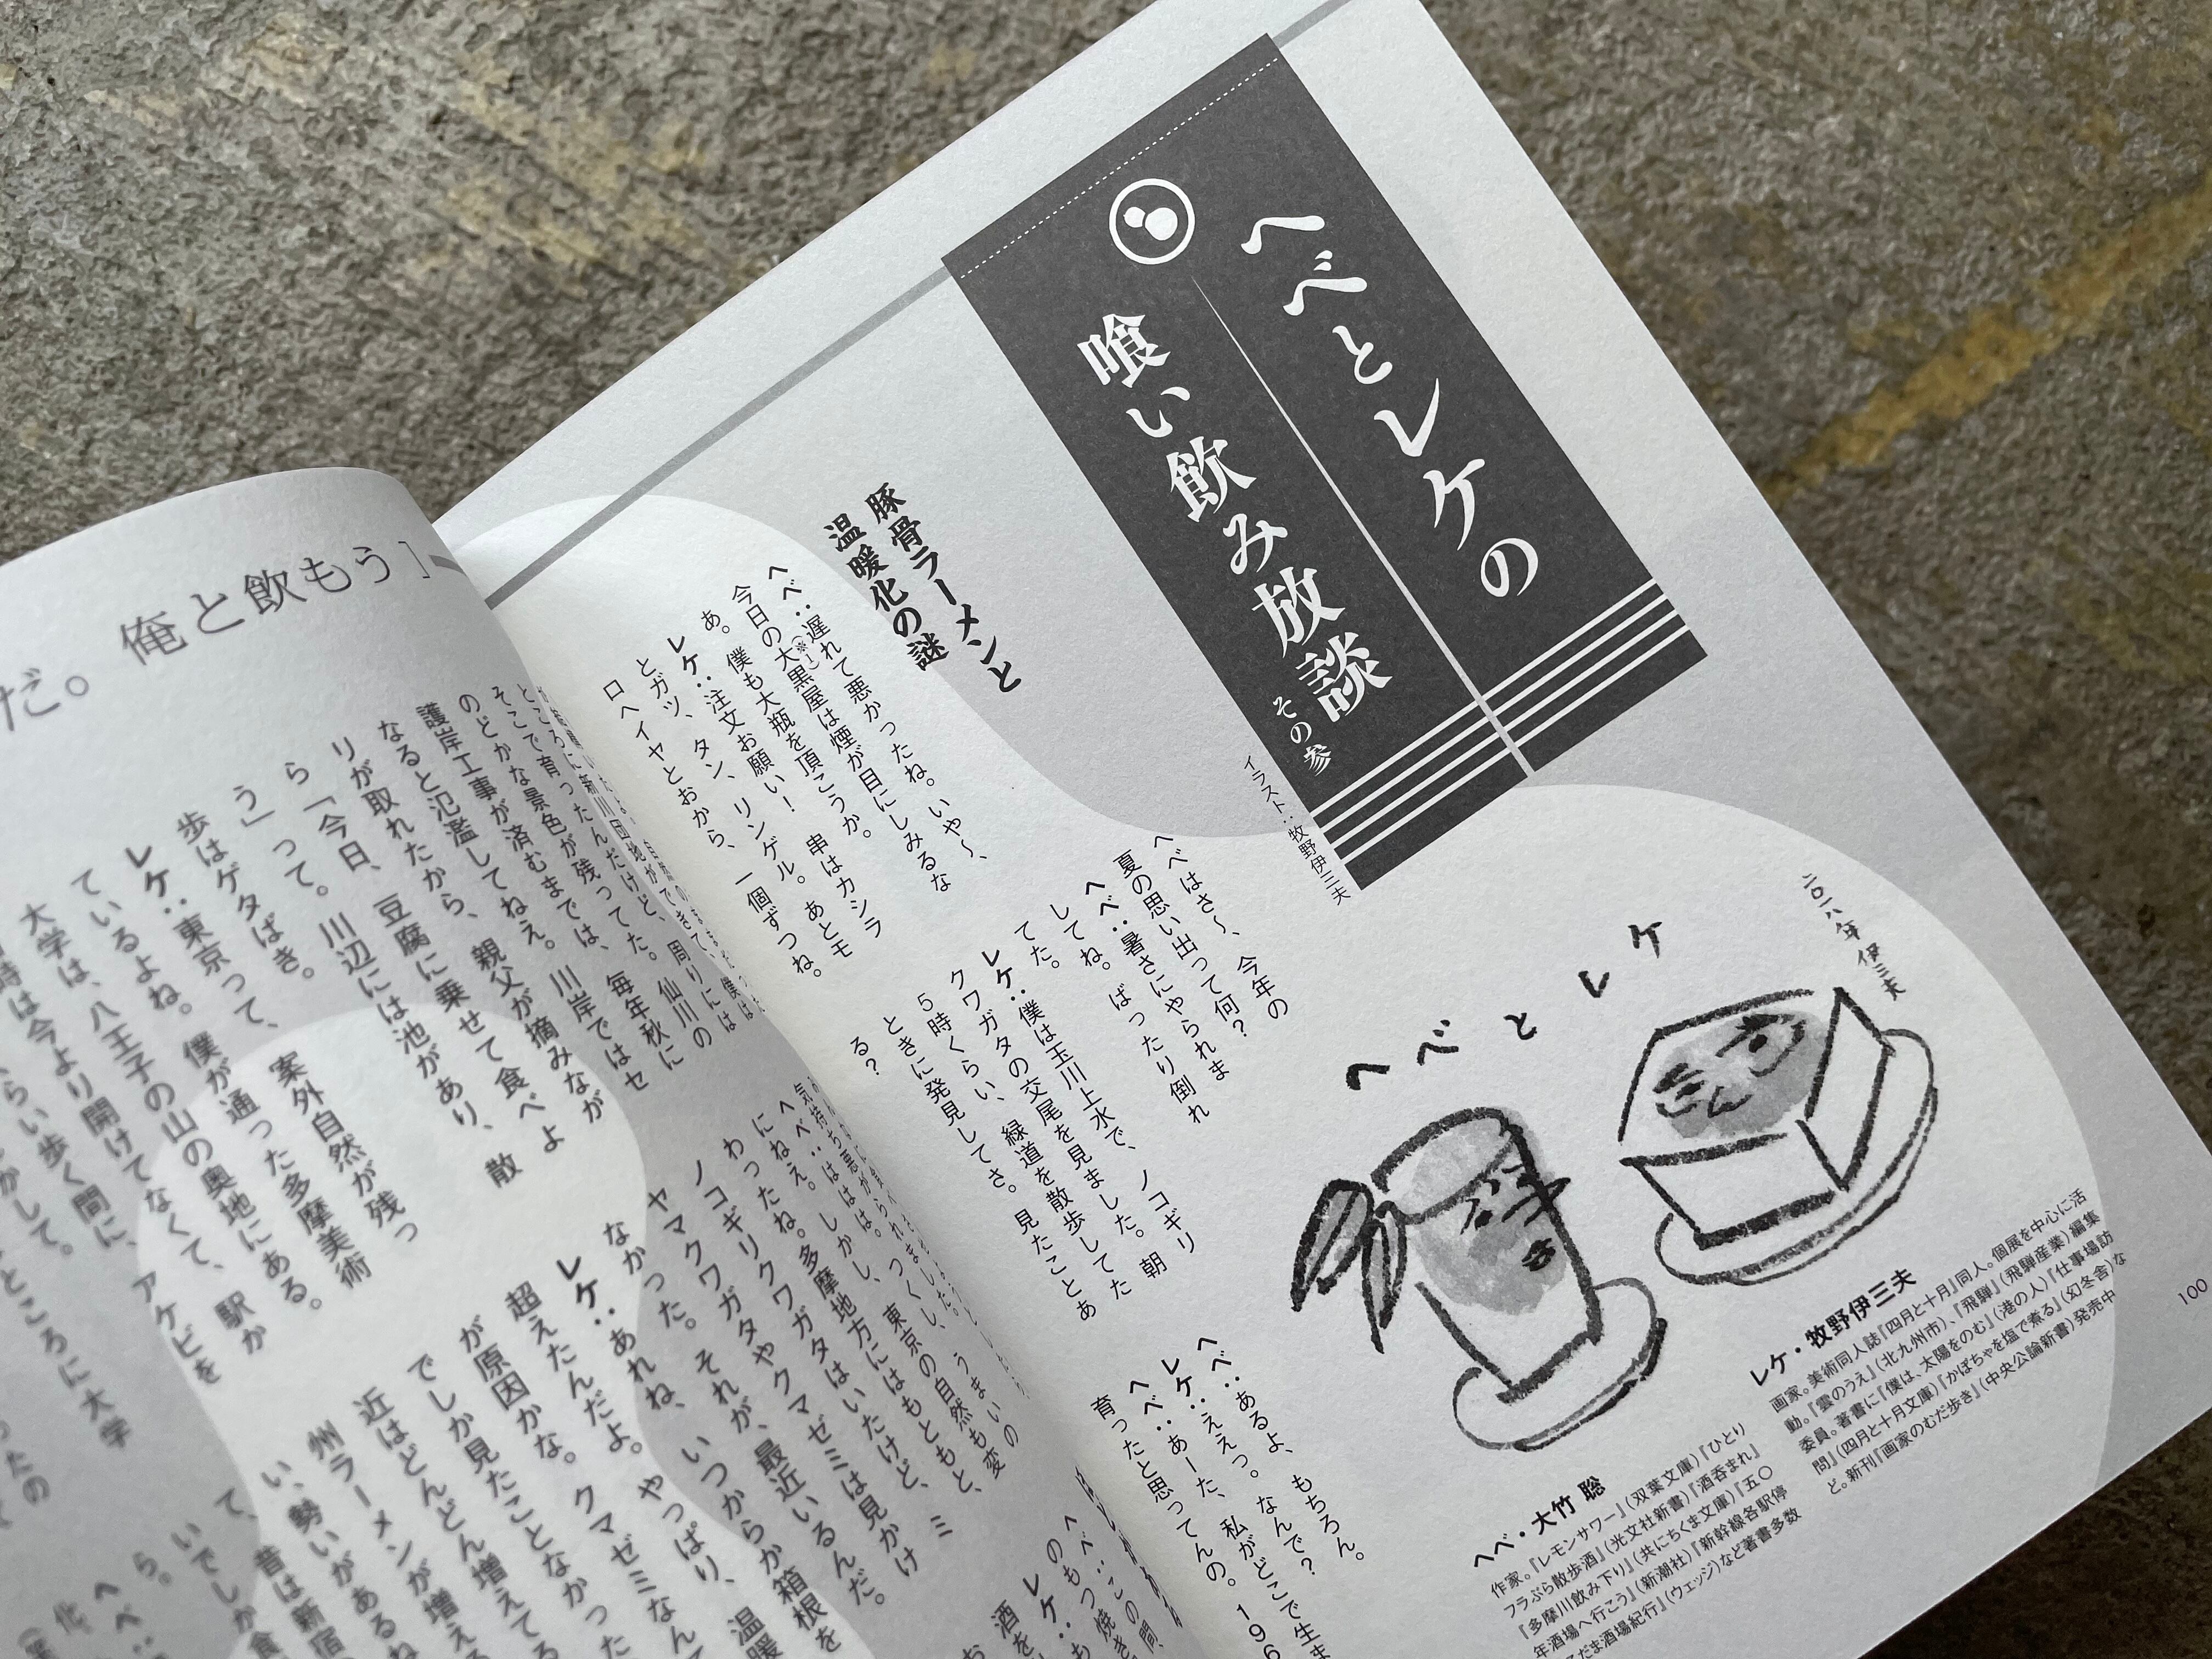 へべとレケの
喰い飲み放談
その参
イラスト：牧野伊三夫
二〇一八年 伊三夫
へべとレケ
レケ・牧野伊三夫
画家。美術同人誌『四月と十月』同人。個展を中心に活
動。『雲のうえ』（北九州市）、『飛騨』（飛騨産業）編集
委員。著書に『僕は、太陽をのむ』（港の人）『仕事場訪
問』（四月と十月文庫）『かぼちゃを塩で煮る』（幻冬舎）な
ど。新刊『画家のむだ歩き』（中央公論新書）発売中
へべ・大竹 聡
作家。『レモンサワー』（双葉文庫）『ひとり
フラぶら散歩酒』（光文社新書）『酒呑まれ』
『多摩川飲み下り』（共にちくま文庫）『五〇
年酒場へ行こう』（新潮社）『新幹線各駅停
だま酒場紀行』（ウェッジ）など著書多数
100
豚骨ラーメンと
温暖化の謎
へべ：遅れて悪かったね。いや〜、
今日の大黒屋は煙が目にしみるな
（※1）
あ。僕も大瓶を頂こうか。
レケ：注文お願い！ 串はカシラ
とガツ、タン、リンゲル。あとモ
ロヘイヤとおから、一個ずつね。
へべはさ〜、今年の
夏の思い出って何？
へべ：暑さにやられま
してね。ばったり倒れ
てた。
レケ：僕は玉川上水で、ノコギリ
クワガタの交尾を見ました。朝
5時くらい、緑道を散歩してた
ときに発見してさ。見たことあ
る？
へべ：あるよ、もちろん。
レケ：ええっ。なんで？
へべ：あーた、私がどこで生ま
育ったと思ってんの。196
へべ：ははは。しかし、東京の自然も変
わったね。多摩地方にはもともと、ミ
ノコギリクワガタはいたけど、
ヤマクワガタやクマゼミは見かけ
なかった。それが、最近いるんだ。
レケ：あれね、いつからか箱根を
超えたんだよ。やっぱり、温暖
が原因かな。クマゼミなんて
でしか見たことなかった
近はどんどん増えてる
州ラーメンが増える
い、勢いがあるね
て、昔は新宿
いでしか食
へべ：この間、
のもつ焼き
レケ：も
酒を
だ。俺と飲もう］
そこで育ったんだけど、仙川の
のどかな景色が残ってた。毎年秋に
護岸工事が済むまでは、川岸ではセ
なると氾濫してねえ。
リが取れたから、親父が摘みなが
ら「今日、豆腐に乗せて食べよ
う」って。川辺には池があり、散
歩はゲタばき。
レケ：東京って、案外自然が残っ
ているよね。僕が通った多摩美術
大学は、八王子の山の奥地にある。
時は今より開けてなくて、駅か
らい歩く間に、アケビを
かして。
ところに大学